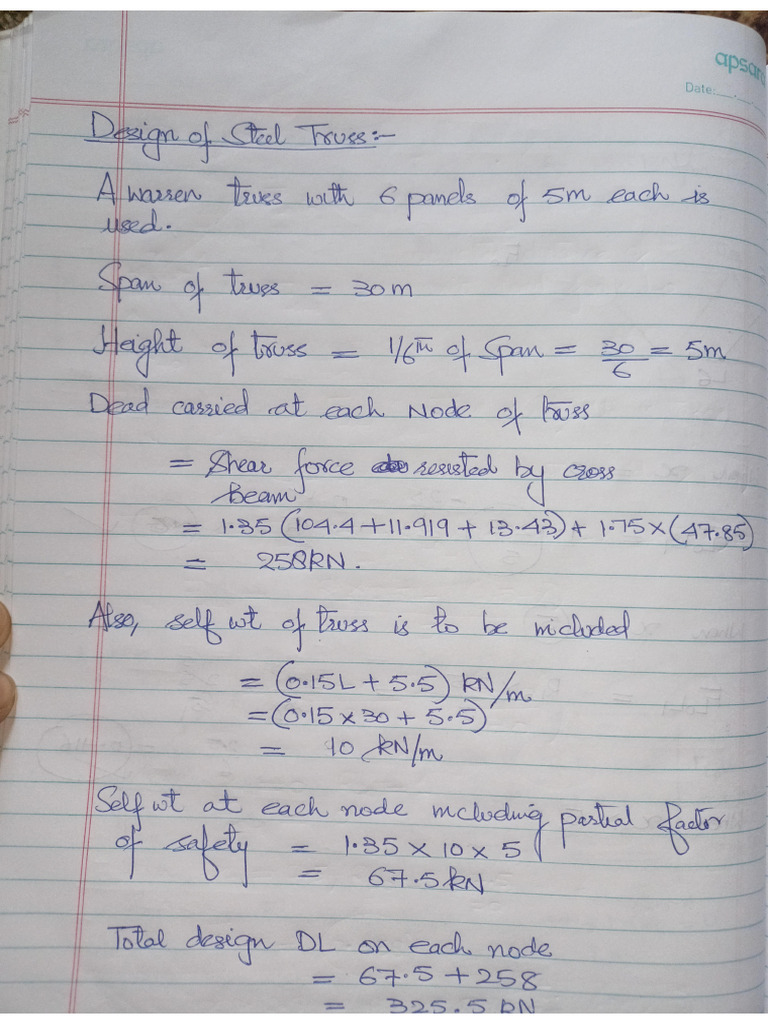 apsara
Date:
Design of Steel Truss:-
A warren truss with 6 panels of 5m each is
used.
Span of truss = 30m
Height of truss = 1/6th of Span = 30/6 = 5m
Dead carried at each Node of truss
= Shear force resisted by cross
Beam
= 1.35 (104.4 + 11.919 + 13.43) + 1.75 × (47.85)
= 258KN.
Also, self wt of truss is to be included
= (0.15L + 5.5) KN/m
= (0.15 × 30 + 5.5)
= 10 KN/m
Self wt at each node including partial factor
of safety = 1.35 × 10 × 5
= 67.5KN
Total design DL on each node
= 67.5 + 258
= 325.5 KN